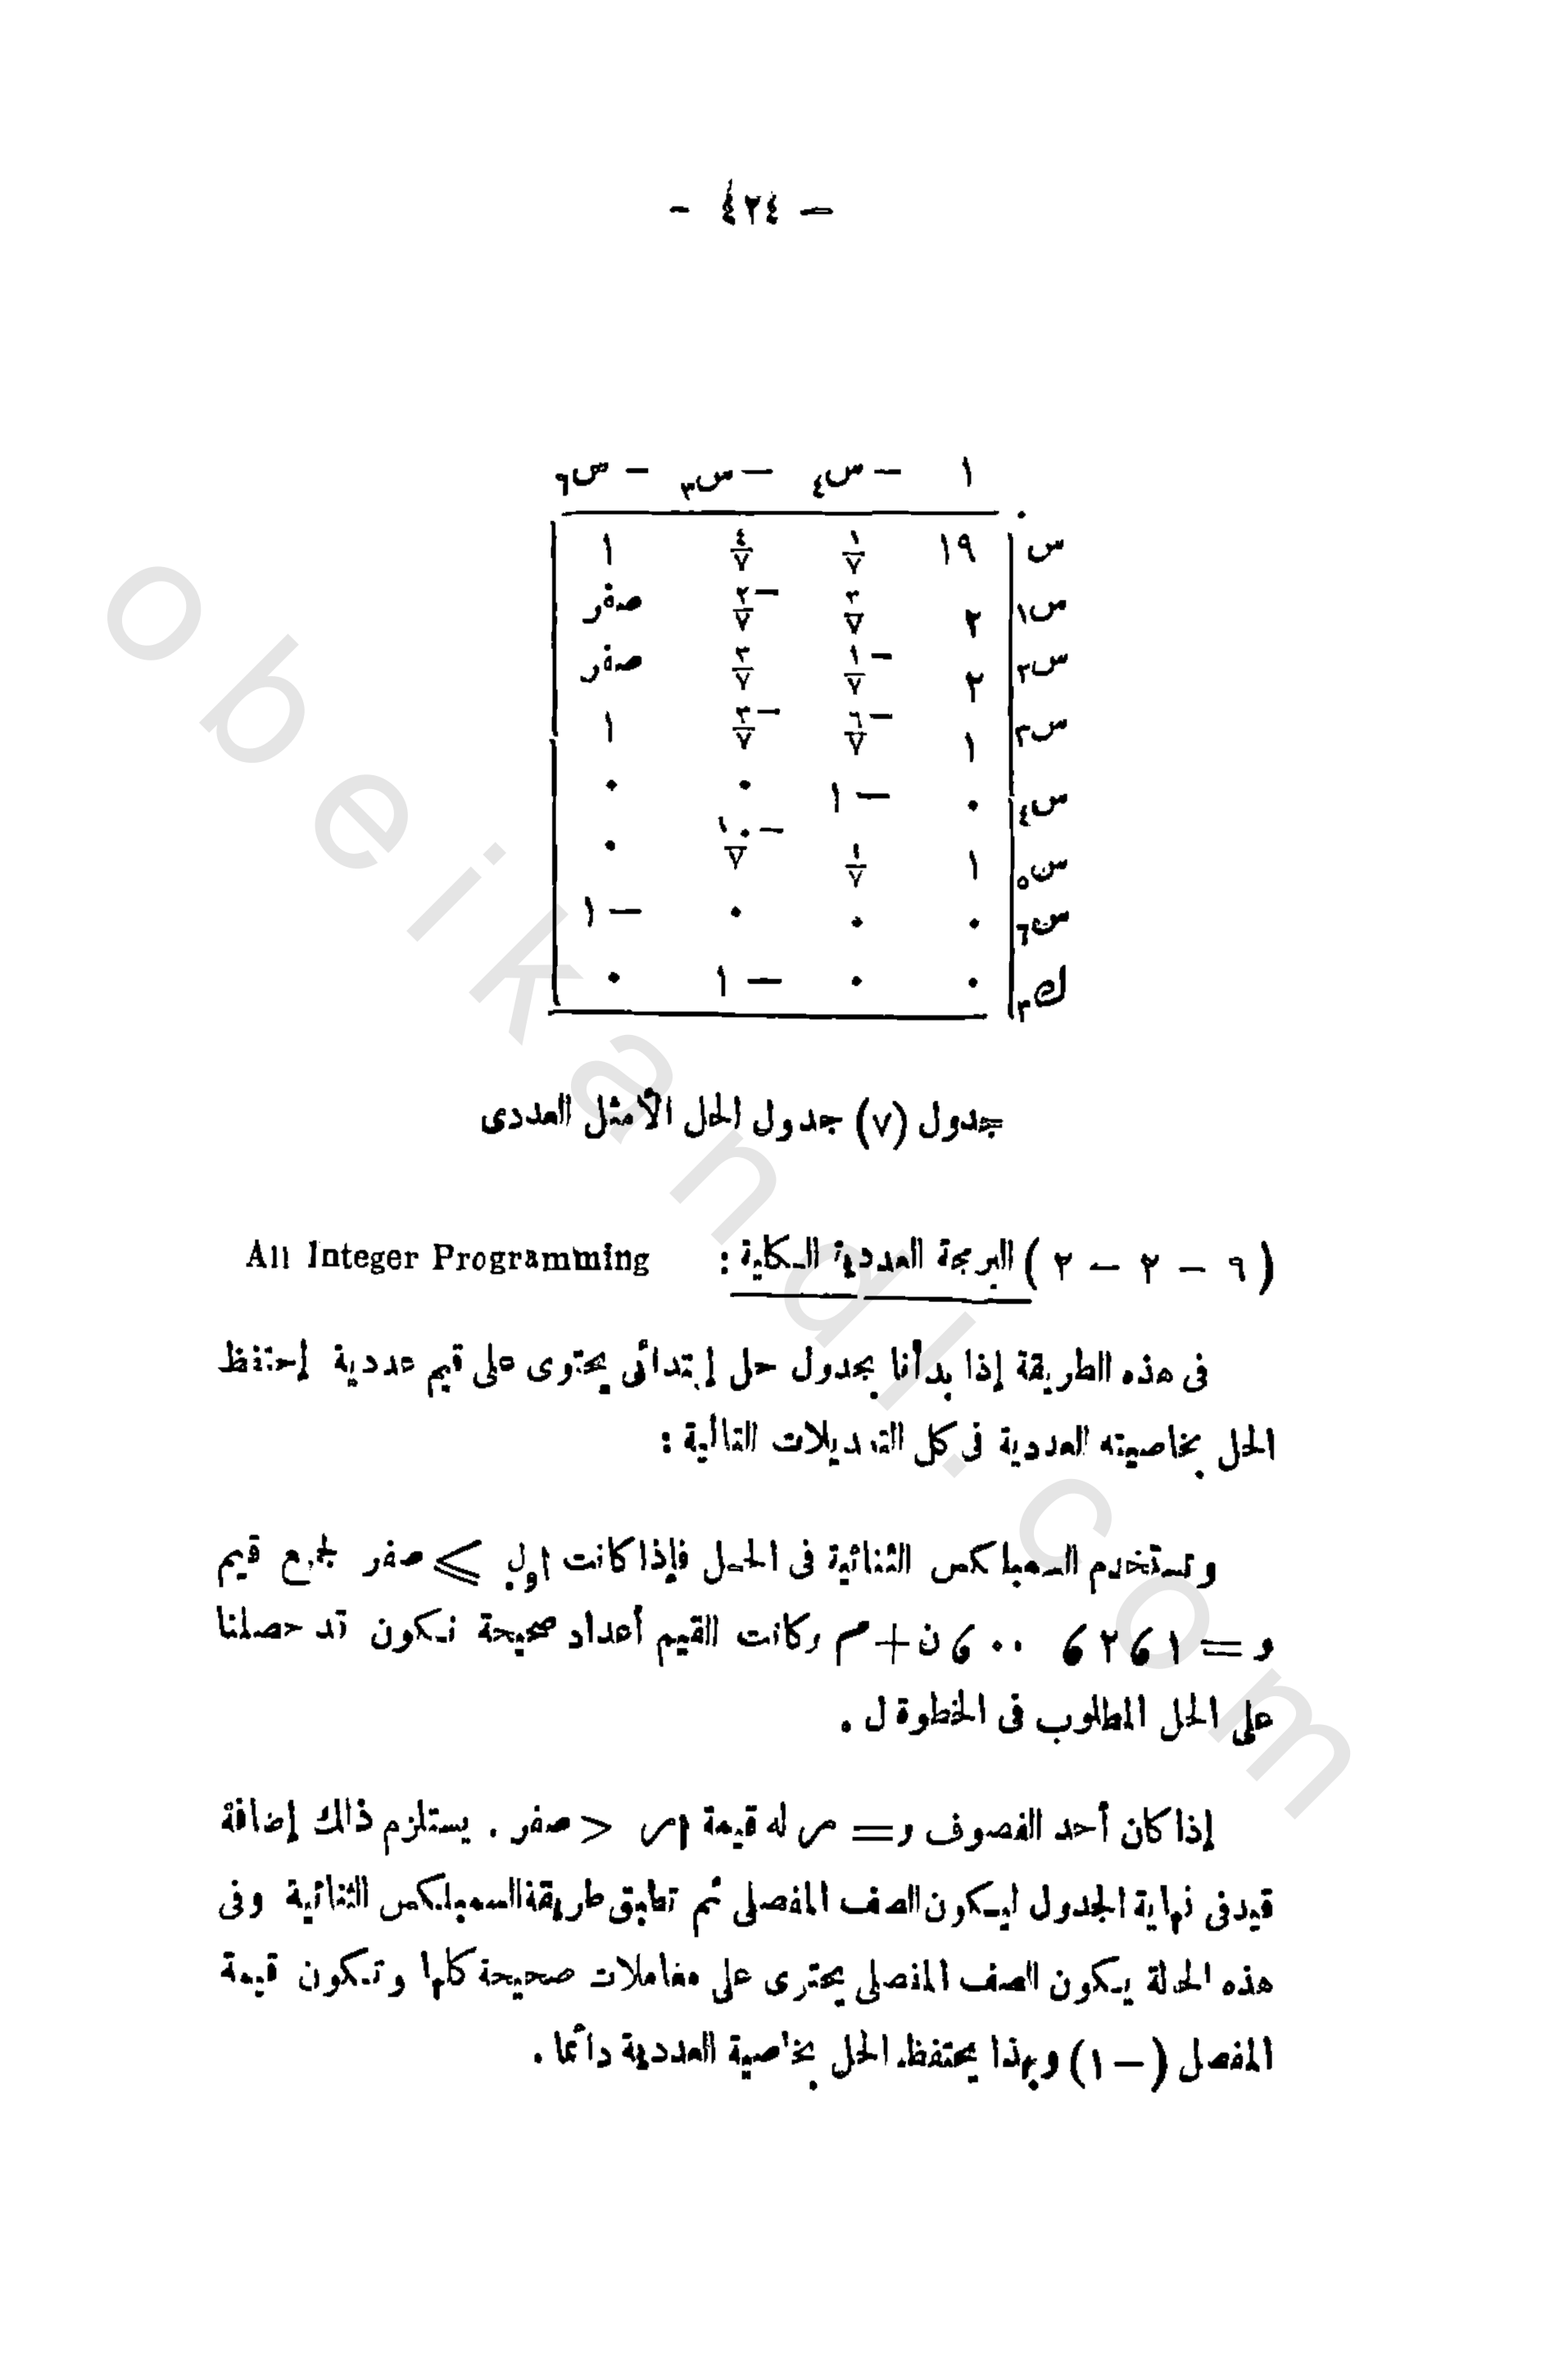 — ٤٢٤ -
١ — س٤ — س٣ — س٦
س. ١٩ ١/٧ ٤/٧ ١
س١ ٢ ٢/٧ —٢/٧ صفر
س٢ ٢ —١/٧ ٢/٧ صفر
س٣ ١ —٦/٧ —٢/٧ ١
س٤ ٠ —١ ٠ ٠
س٥ ١ ١/٧ —١٠/٧ ٠
س٦ ٠ ٠ ٠ —١
ك٣ ٠ ٠ —١ ٠
جدول (٧) جدول الحل الأمثل العددى
(٩ — ٢ — ٢) البرمجة العددية الكلية : All Integer Programming
فى هذه الطريقة إذا بدأنا بجدول حل إبتدائى يحتوى على قيم عددية إحتفظ
الحل بخاصيته العددية فى كل التبديلات التالية :
وتستخدم السمبلكس الثنائية فى الحل فإذا كانت أول ⩾ صفر لجميع قيم
و = ١ ، ٢ ، ٠٠ ، ن + م وكانت القيم أعداد صحيحة نكون قد حصلنا
على الحل المطلوب فى الخطوة ل .
إذا كان أحد الصفوف و = مر له قيمة أمر < صفر . يستلزم ذلك إضافة
قيد فى نهاية الجدول ليكون الصف المفصلى ثم تطبق طريقة السمبلكس الثنائية وفى
هذه الحالة يكون الصف المفصلى يحتوى على معاملات صحيحة كلها وتكون قيمة
المفصل (— ١) وبهذا يحتفظ الحل بخاصية العددية دائما .
obeikandl.com